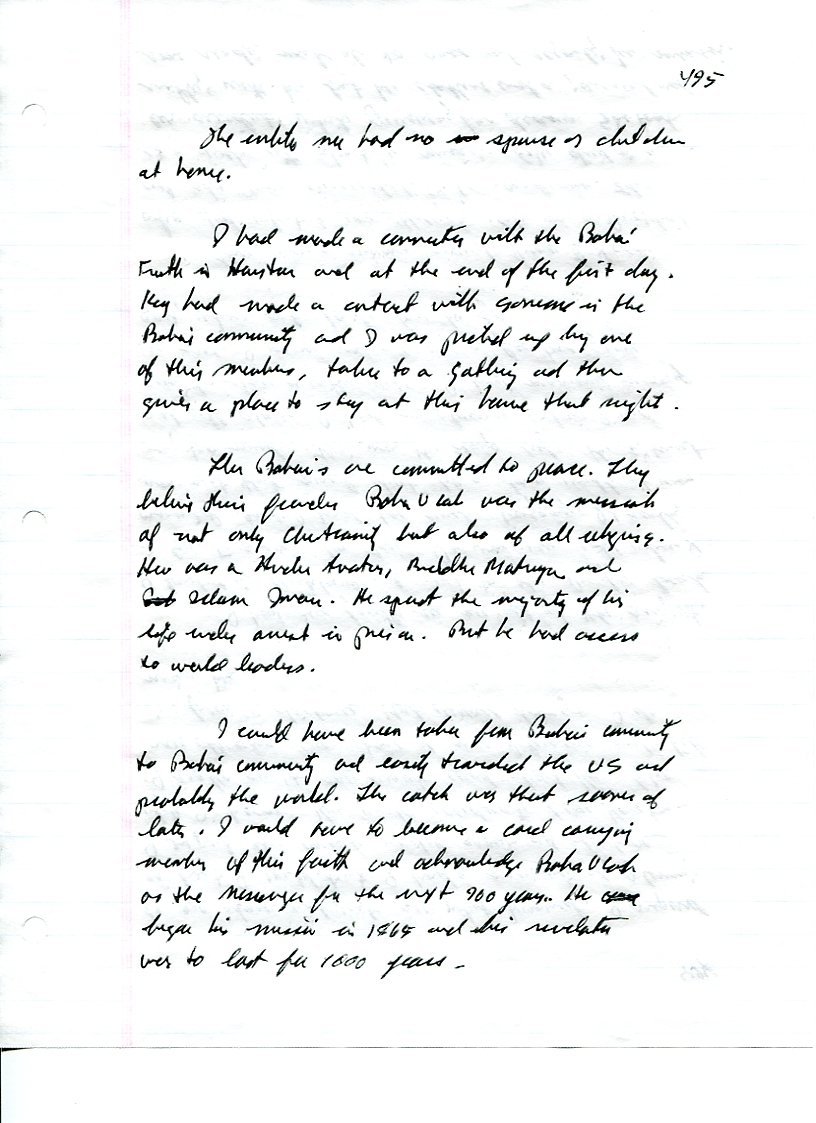 495
The entity me had no spouse or children
at home.
I had made a connection with the Baha'i
Truth in Houston and at the end of the first day.
Key had made a contact with someone in the
Baha'i community and I was picked up by one
of this members, taken to a gathering and then
given a place to stay at this home that night.
The Baha'i's are committed to peace. They
believe their founder Baha U lah was the messiah
of not only Christianity but also of all religions.
He was a Hindu Avatar, Buddha Matreya and
Islam Imam. He spent the majority of his
life under arrest in prison. But he had access
to world leaders.
I could have been taken from Baha'i community
to Baha'i community and easily traveled the US and
probably the world. The catch was that sooner or
later. I would have to become a card carrying
member of this faith and acknowledge Baha U lah
as the Messenger for the next 900 years. He
began his mission in 1864 and his revelation
was to last for 1000 years.